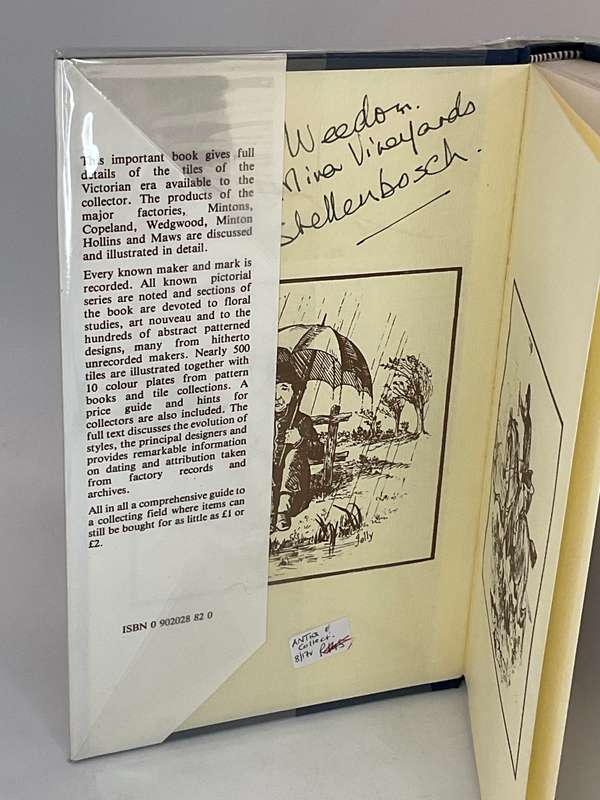 This important book gives full
details of the tiles of the
Victorian era available to the
collector. The products of the
major factories, Mintons,
Copeland, Wedgwood, Minton
Hollins and Maws are discussed
and illustrated in detail.
Every known maker and mark is
recorded. All known pictorial
series are noted and sections of
the book are devoted to floral
studies, art nouveau and to the
hundreds of abstract patterned
designs, many from hitherto
unrecorded makers. Nearly 500
tiles are illustrated together with
10 colour plates from pattern
books and tile collections. A
price guide and hints for
collectors are also included. The
full text discusses the evolution of
styles, the principal designers and
provides remarkable information
on dating and attribution taken
from factory records and
archives.
All in all a comprehensive guide to
a collecting field where items can
still be bought for as little as £1 or
£2.
ISBN 0 902028 82 0
Weedon.
Vineyards
Stellenbosch.
Jolly